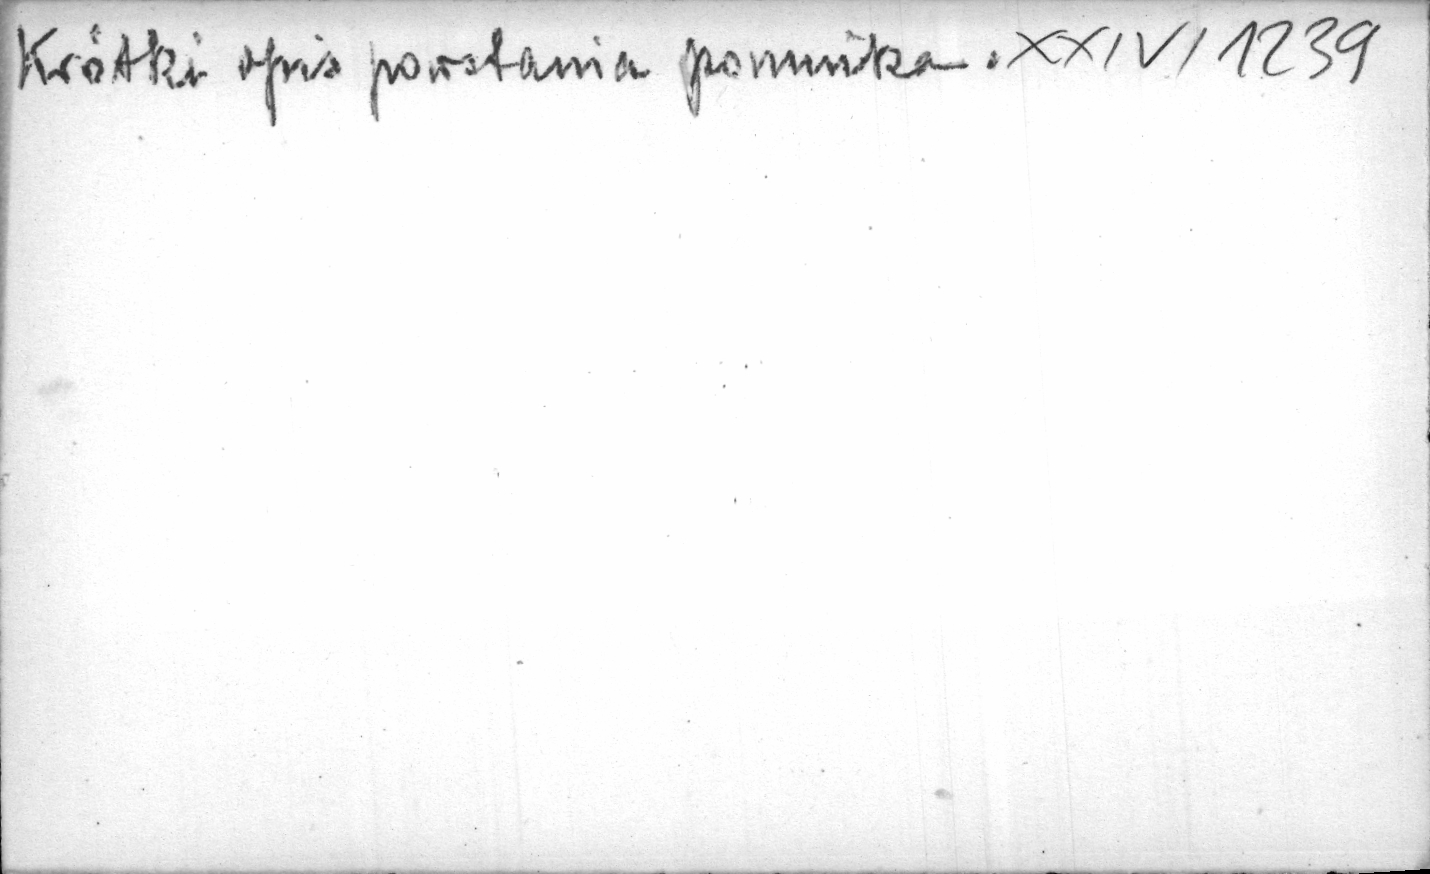 Krótki opis powstania pomnika. XXIV/1239